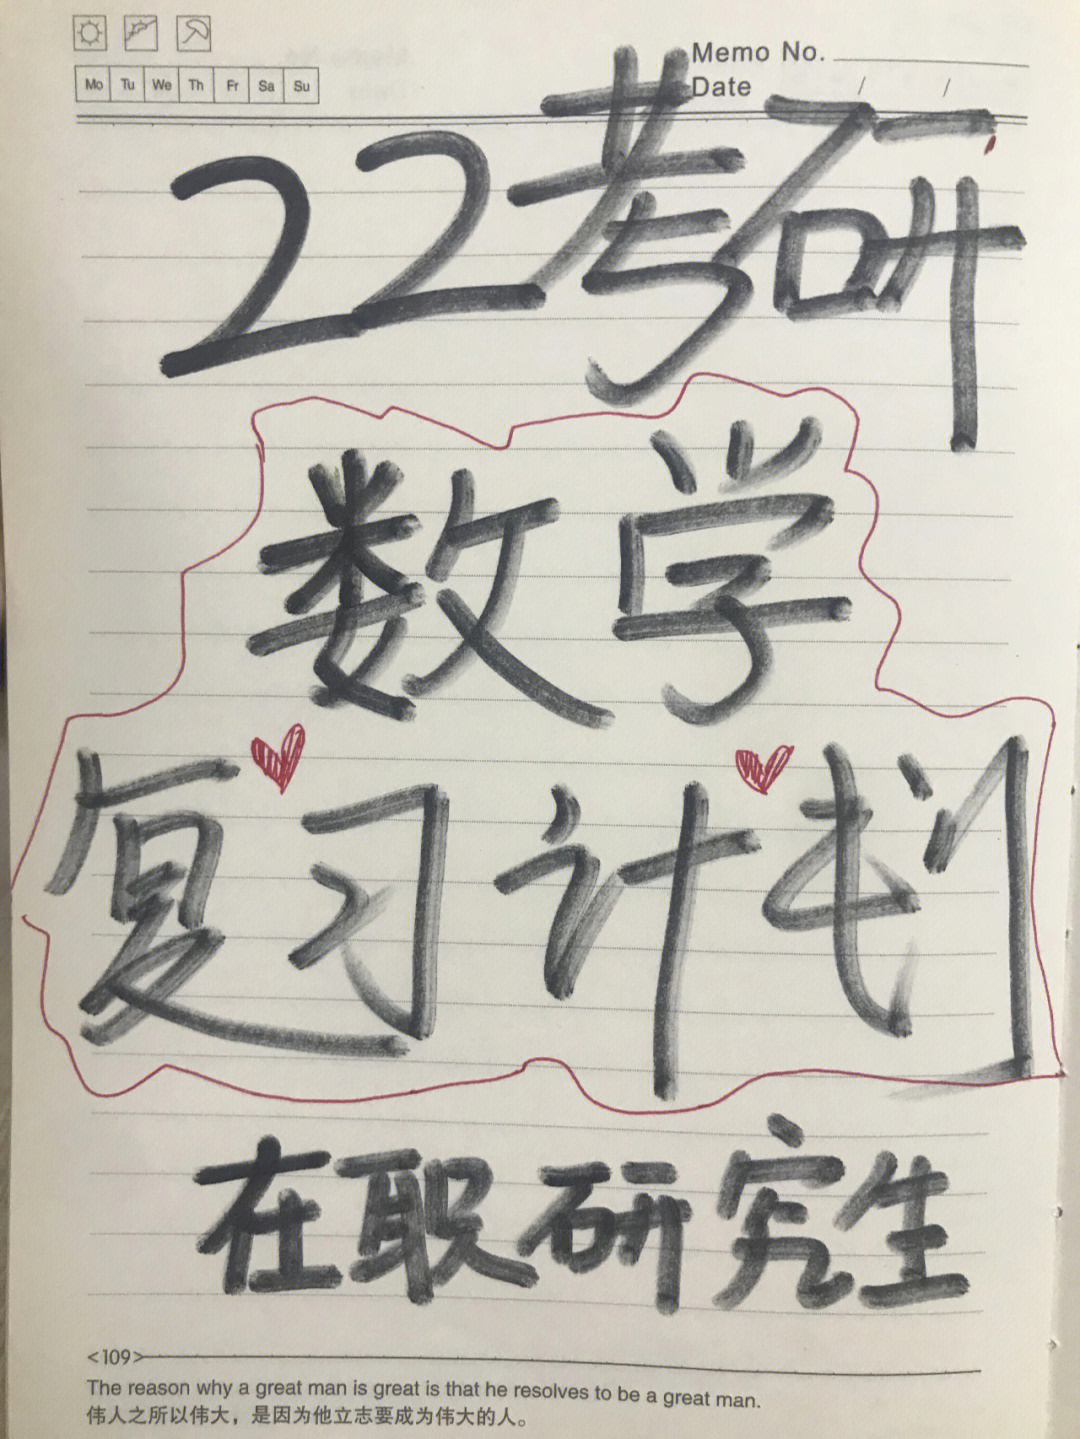 Memo No.
Mo Tu We Th Fr Sa Su
Date / /
22考研
数学
复习计划
在职研究生
<109>
The reason why a great man is great is that he resolves to be a great man.
伟人之所以伟大，是因为他立志要成为伟大的人。